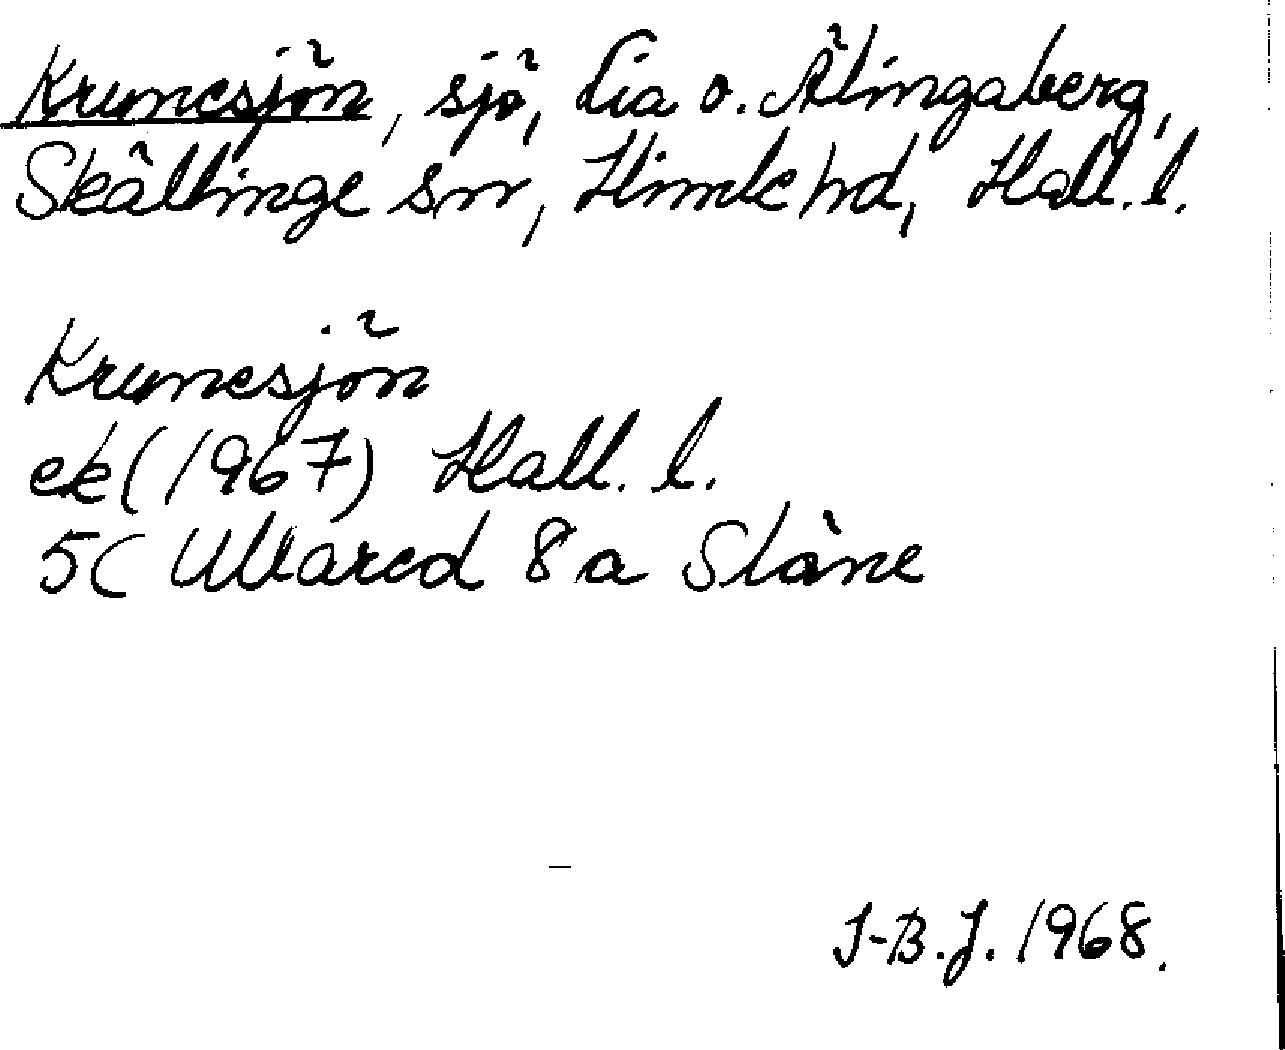 Krumesjön, sjö, Lia o. Älingaberg,
Skällinge sn, Himle hd, Hall. l.
Krumesjön
ek (1967) Hall. l.
5C Ullared 8 a Slåne
J-B.J. 1968.